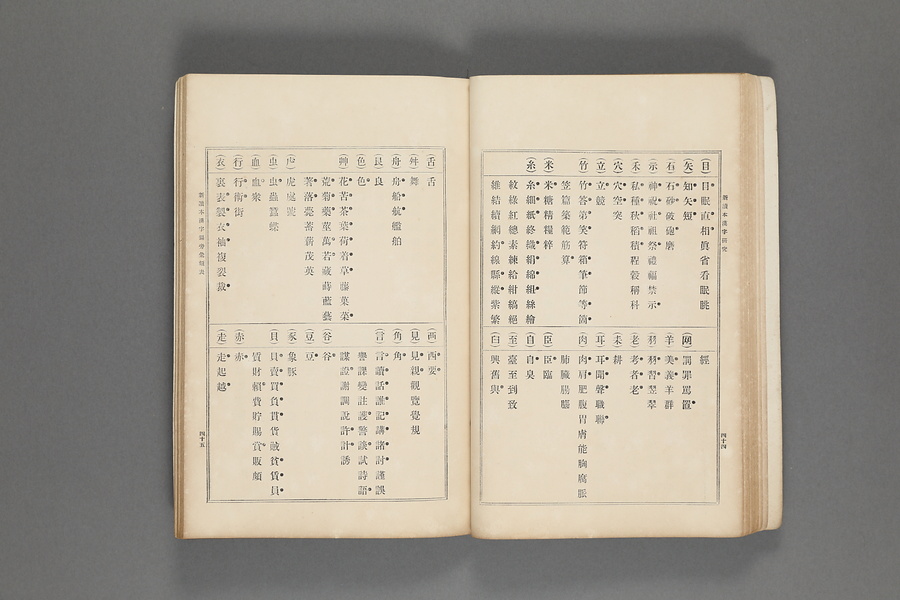 (目)目眠直相眞省看眠眺
(矢)知矢短
(石)石砂破砲磨
(示)神祝社祖祭禮福禁示
(禾)私種秋稻積程穀稱科
(穴)穴空突
(立)立競
(竹)竹答第笑符箱筆節等箇
笠篇築範筋算
(米)米糖精糧粹
(糸)糸細紙終織絹綿組絲繪
紋綠紅總素練給紺縞絕
維結續網約線縣縱紫繁
經
(网)罰罪罵置
(羊)羊美義羊群
(羽)羽習翌翠
(老)老考者老
(耒)耕
(耳)耳聞聲職聯
(肉)肉肩肥腹胃膚能胸腐脈
肺臟腸腦
(臣)臣臨
(自)自臭
(至)臺至到致
(臼)興舊與
四十四
(舌)舌
(舛)舞
(舟)舟船航艦舶
(艮)良
(色)色
(艸)花苦茶葉荷着草藤菓菜
荒菊藥菫萬若藏蒔藍藝
著落薨蕃茂英
(虍)虎處號
(虫)虫蟲蠶
(血)血衆
(行)行術街
(衣)裏表製衣袖複裂裁
(襾)西要
(見)見親觀覽覺規
(角)角
(言)言讀話誰記講諸討謹誤
譽課變註護警談試詩語
謀設謝調說許計誘
(谷)谷
(豆)豆
(豕)象豚
(貝)貝賣買負貫貨貧賃員
質財賴貸貯賜賞販
(赤)赤
(走)走起越
四十五